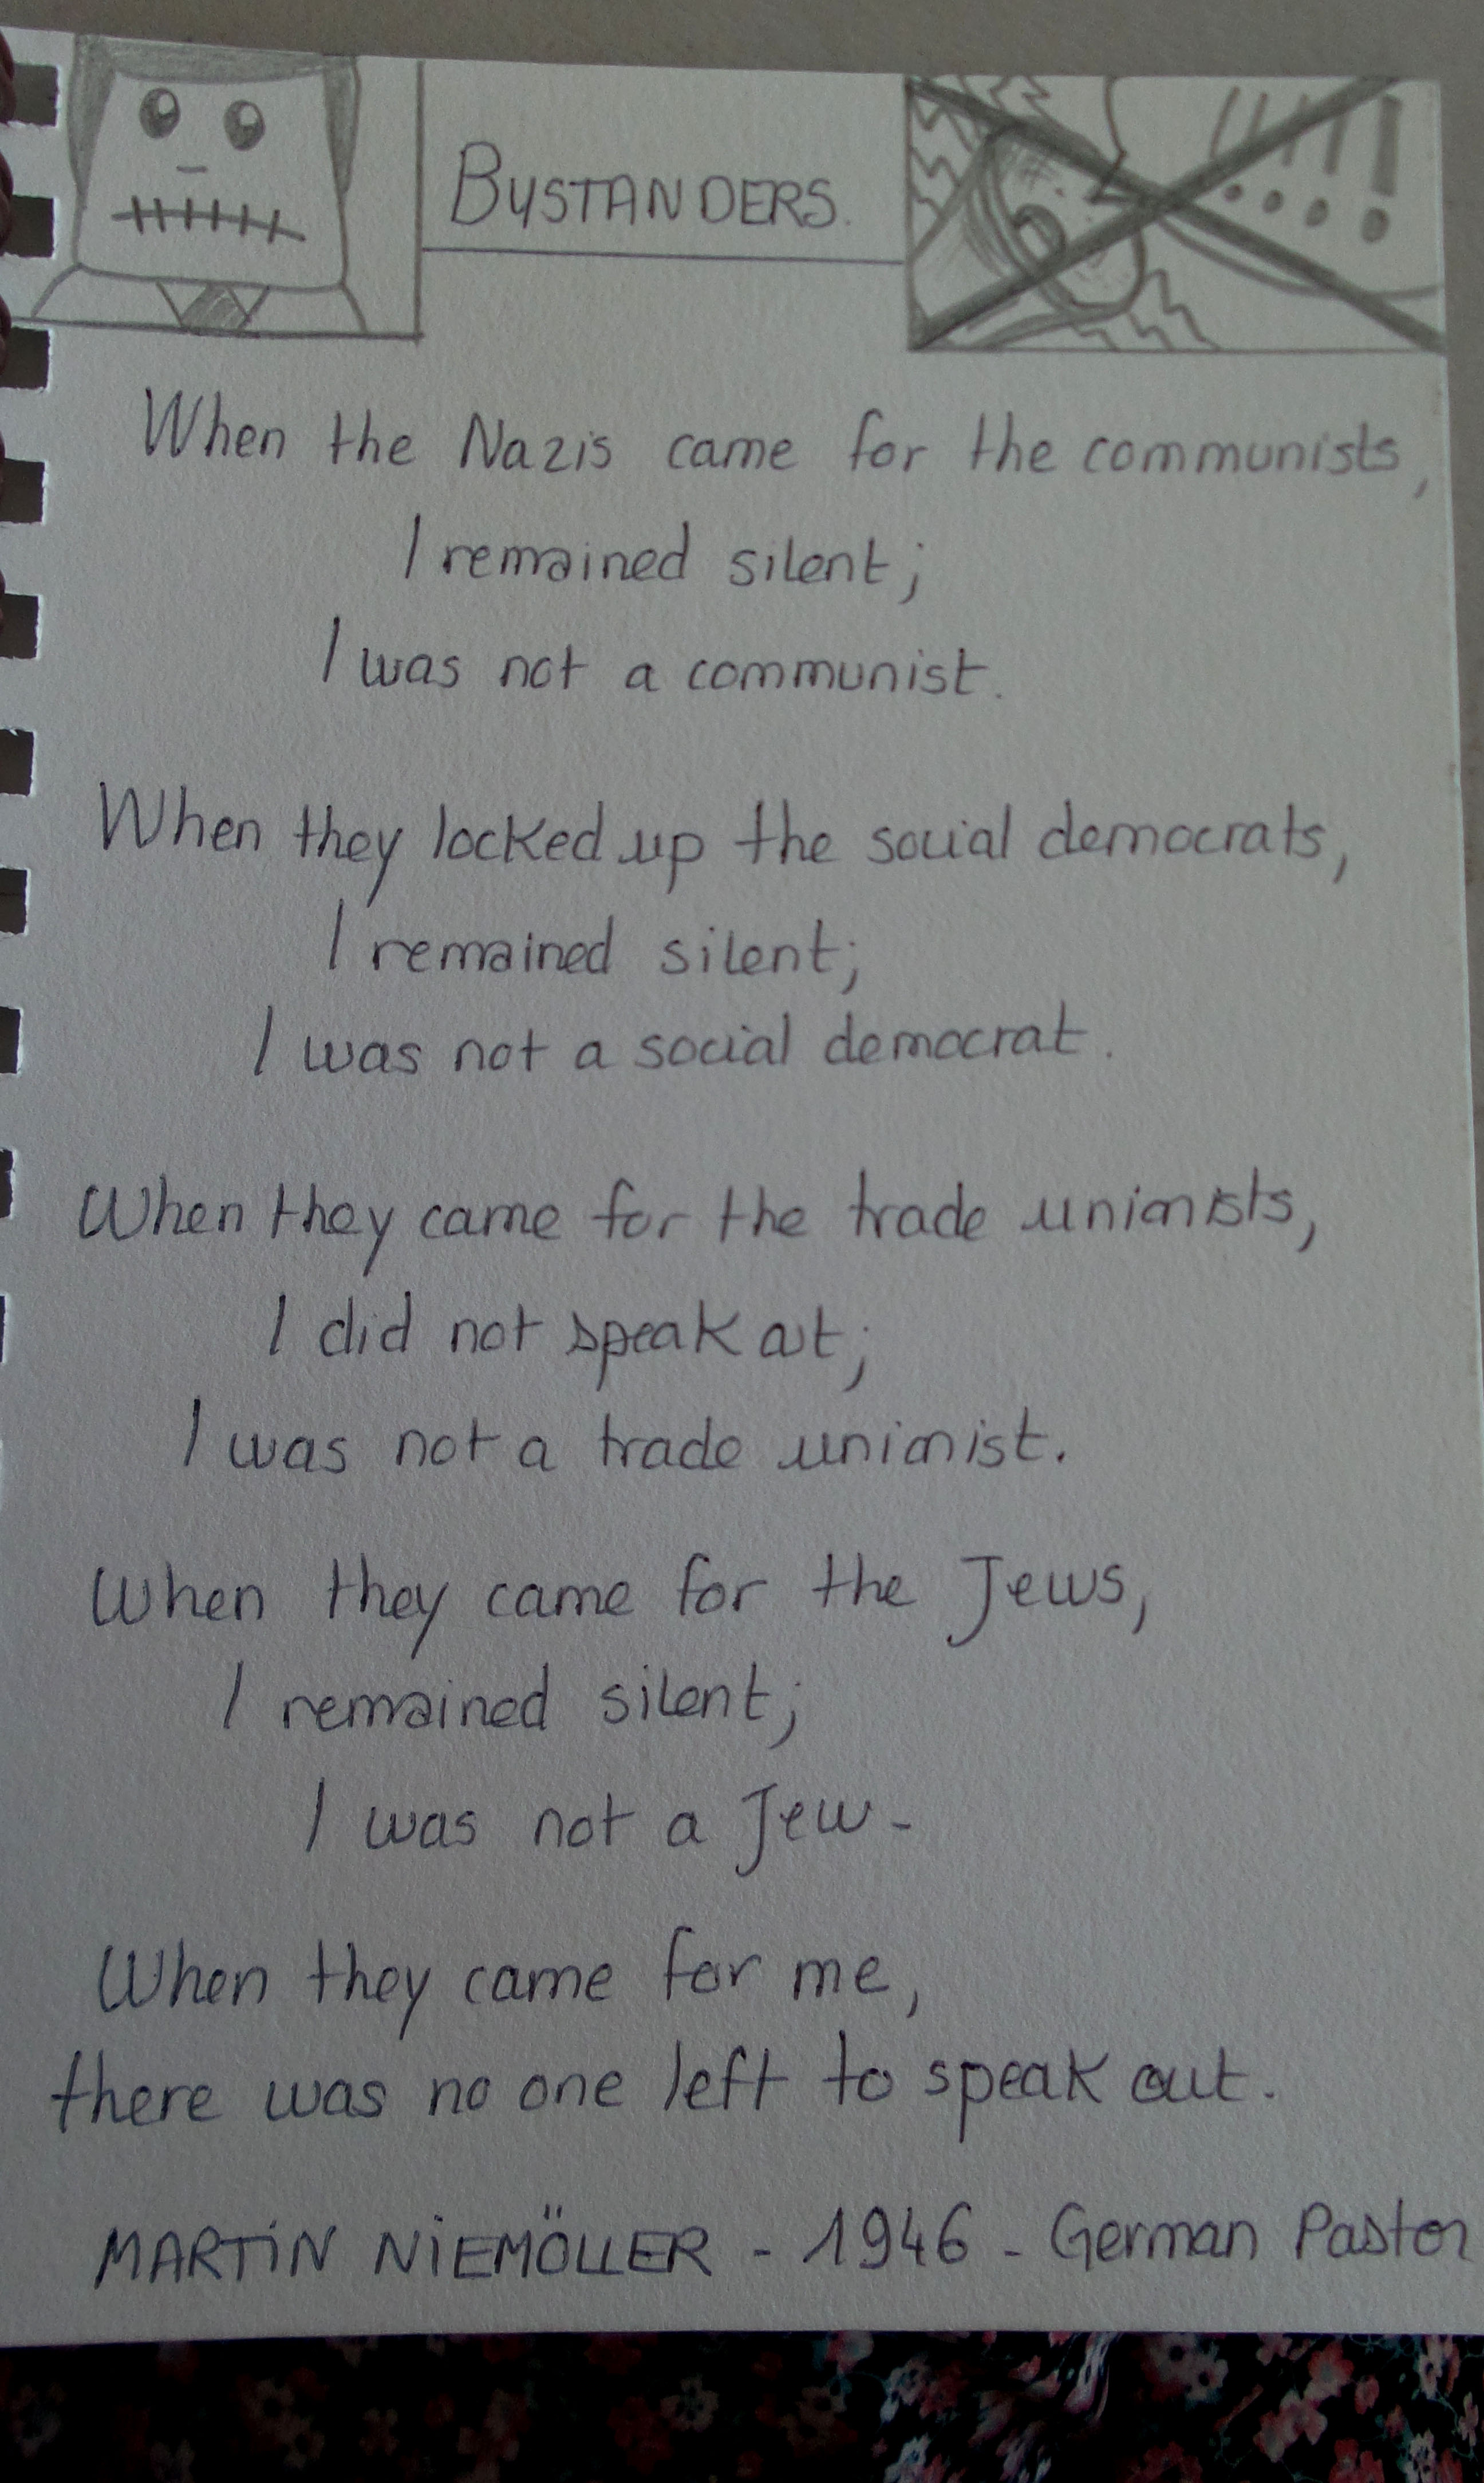 BYSTANDERS.
!!!!
When the Nazis came for the communists,
I remained silent;
I was not a communist.
When they locked up the social democrats,
I remained silent;
I was not a social democrat.
When they came for the trade unionists,
I did not speak out;
I was not a trade unionist.
When they came for the Jews,
I remained silent;
I was not a Jew-
When they came for me,
there was no one left to speak out.
MARTIN NIEMÖLLER - 1946 - German Pastor